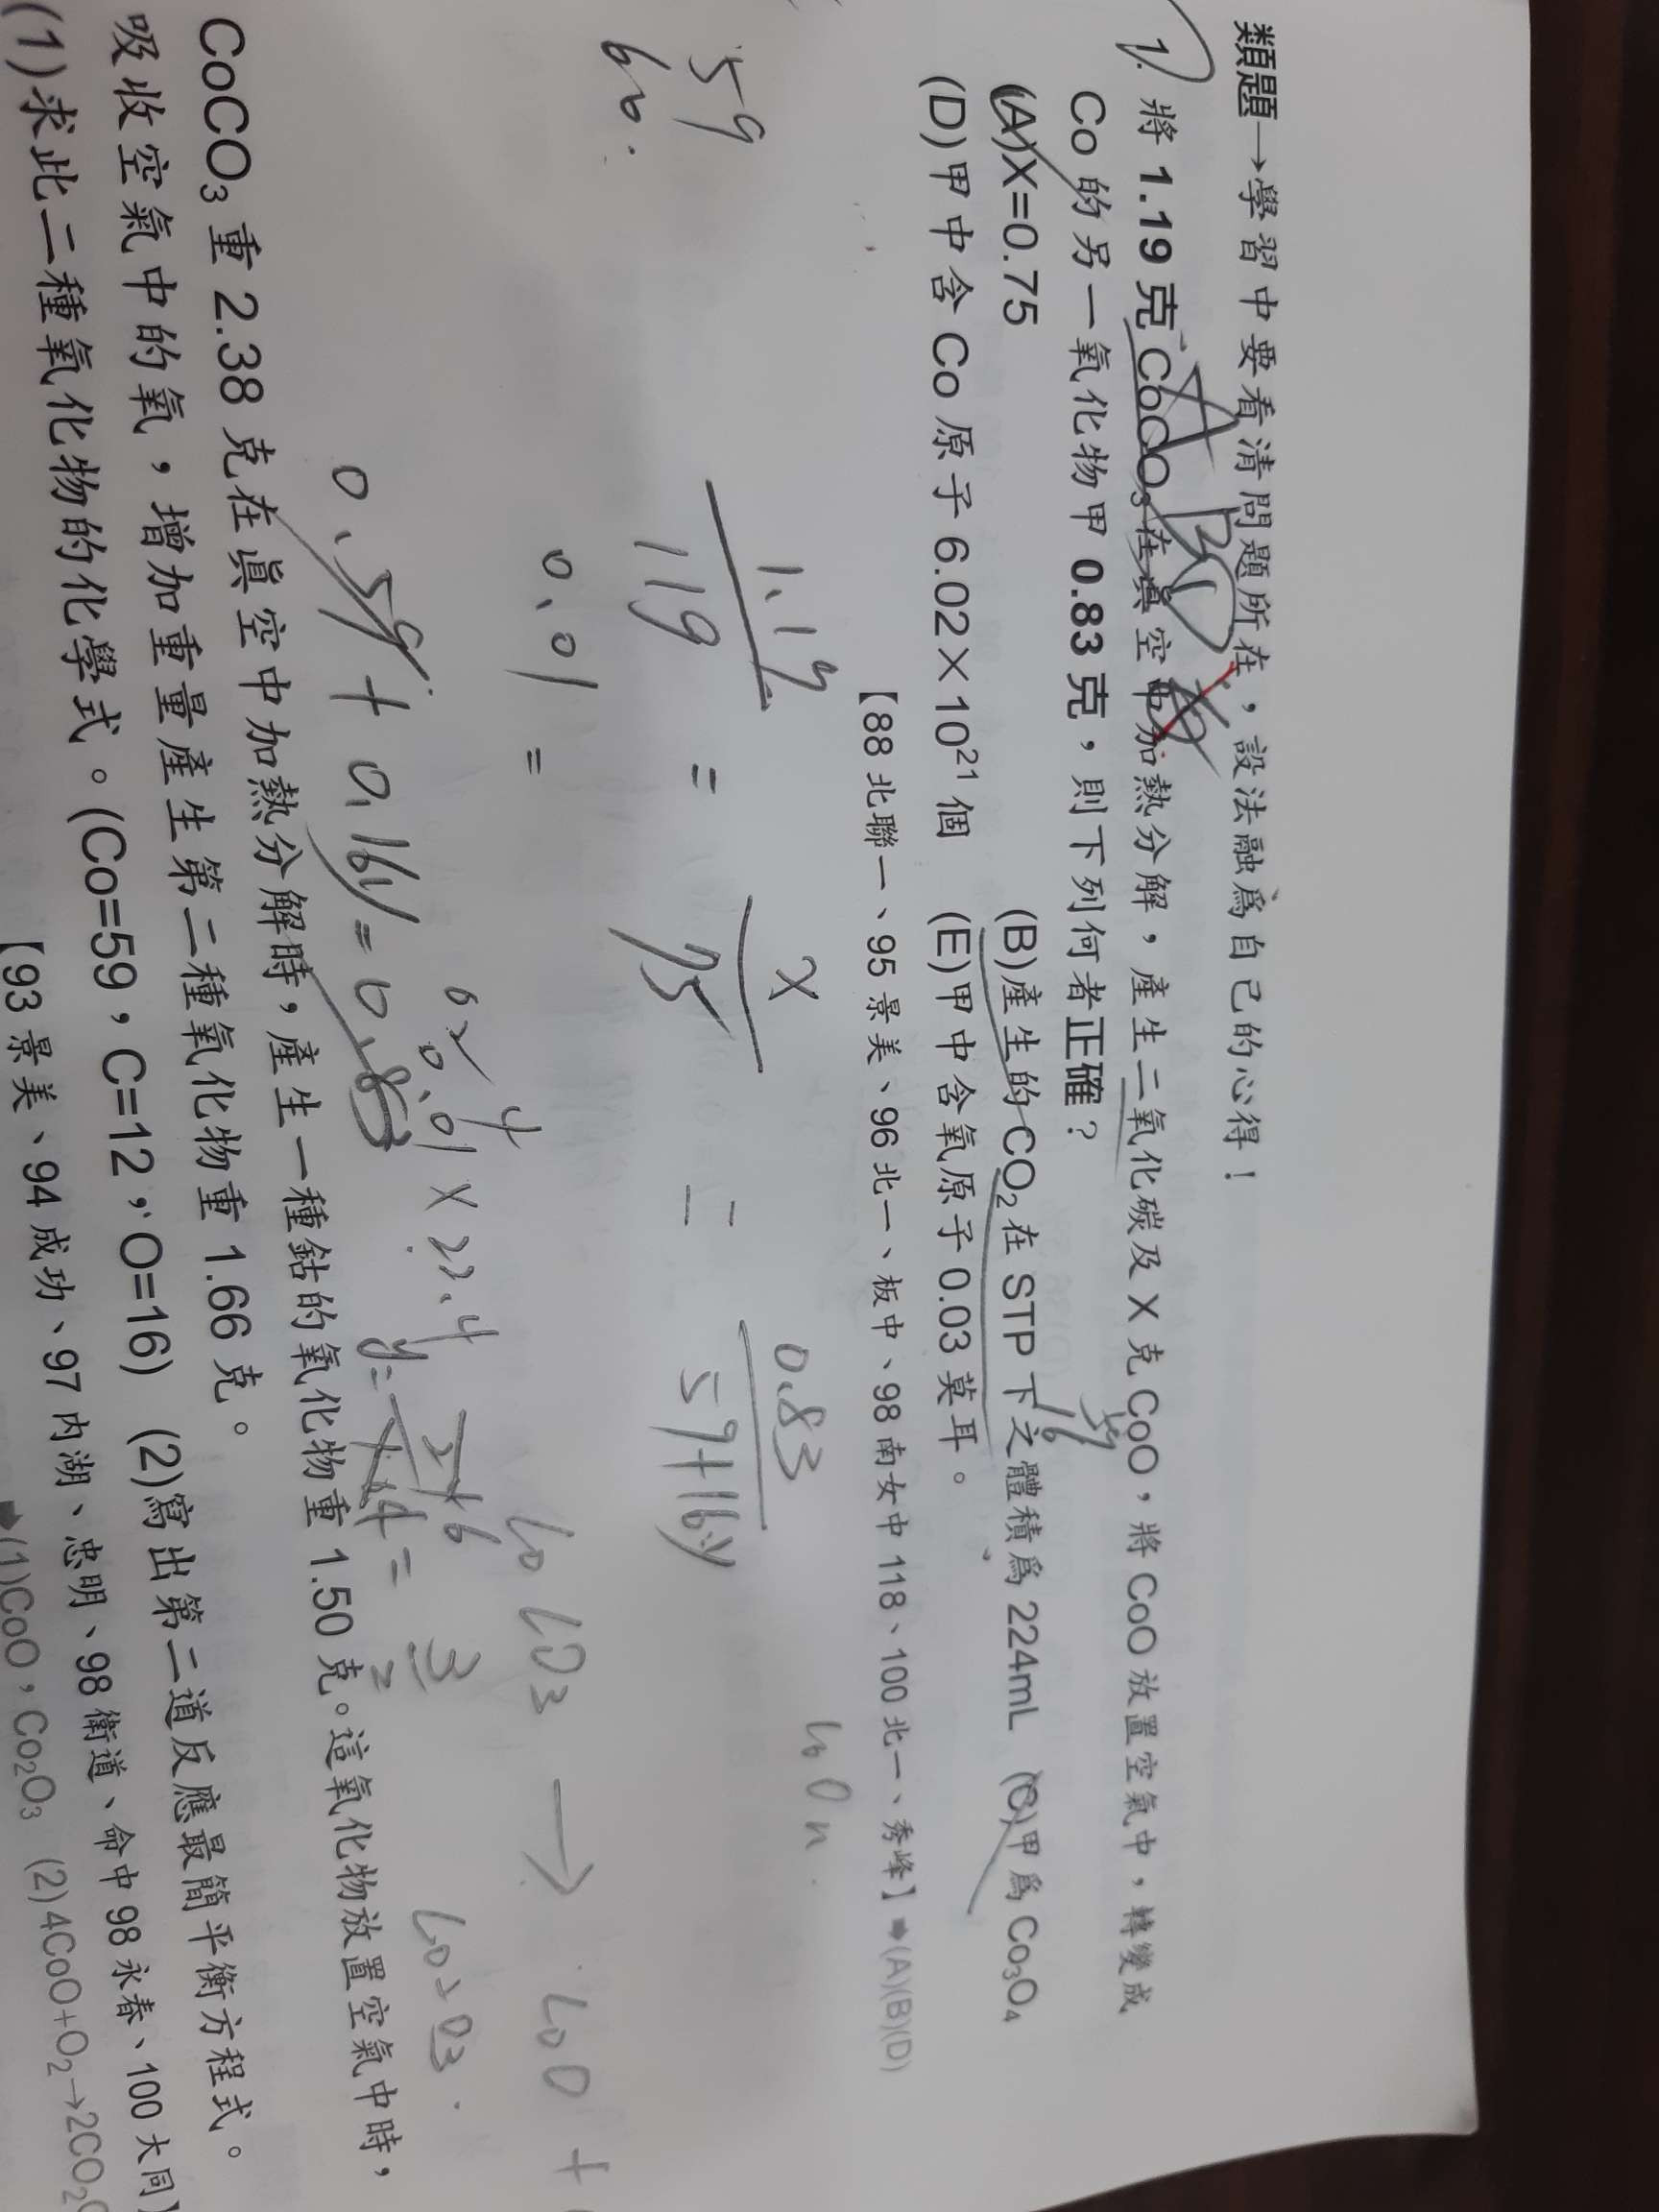 類題→學習中要看清問題所在,設法融爲自己的心得!
1. 將 1.19 克 CoCO₃ 在眞空中加熱分解,產生二氧化碳及 X 克 CoO,將 CoO 放置空氣中,轉變成
Co 的另一氧化物甲 0.83 克,則下列何者正確?
(A)X=0.75 (B)產生的 CO₂ 在 STP 下之體積爲 224mL (C)甲爲 Co₃O₄
(D)甲中含 Co 原子 6.02×10²¹ 個 (E)甲中含氧原子 0.03 莫耳。
【88 北聯一、95 景美、96 北一、板中、98 南女中 118、100 北一、秀峰】➡(A)(B)(D)
59
60.
16 59
1.19/119 = x/75 = 0.83/59+16y
CoOn
0.01 =
CoCO₃ → CoO +
0.01 × 22.4
0.59 + 0.16y = 0.83
y= = 3/2
Co₂O₃
CoCO₃ 重 2.38 克在眞空中加熱分解時,產生一種鈷的氧化物重 1.50 克。這氧化物放置空氣中時,
吸收空氣中的氧,增加重量產生第二種氧化物重 1.66 克。
(1)求此二種氧化物的化學式。(Co=59,C=12,O=16) (2)寫出第二道反應最簡平衡方程式。
【93 景美、94 成功、97 內湖、忠明、98 衛道、命中 98 永春、100 大同】
➡(1)CoO,Co₂O₃ (2)4CoO+O₂→2Co₂O